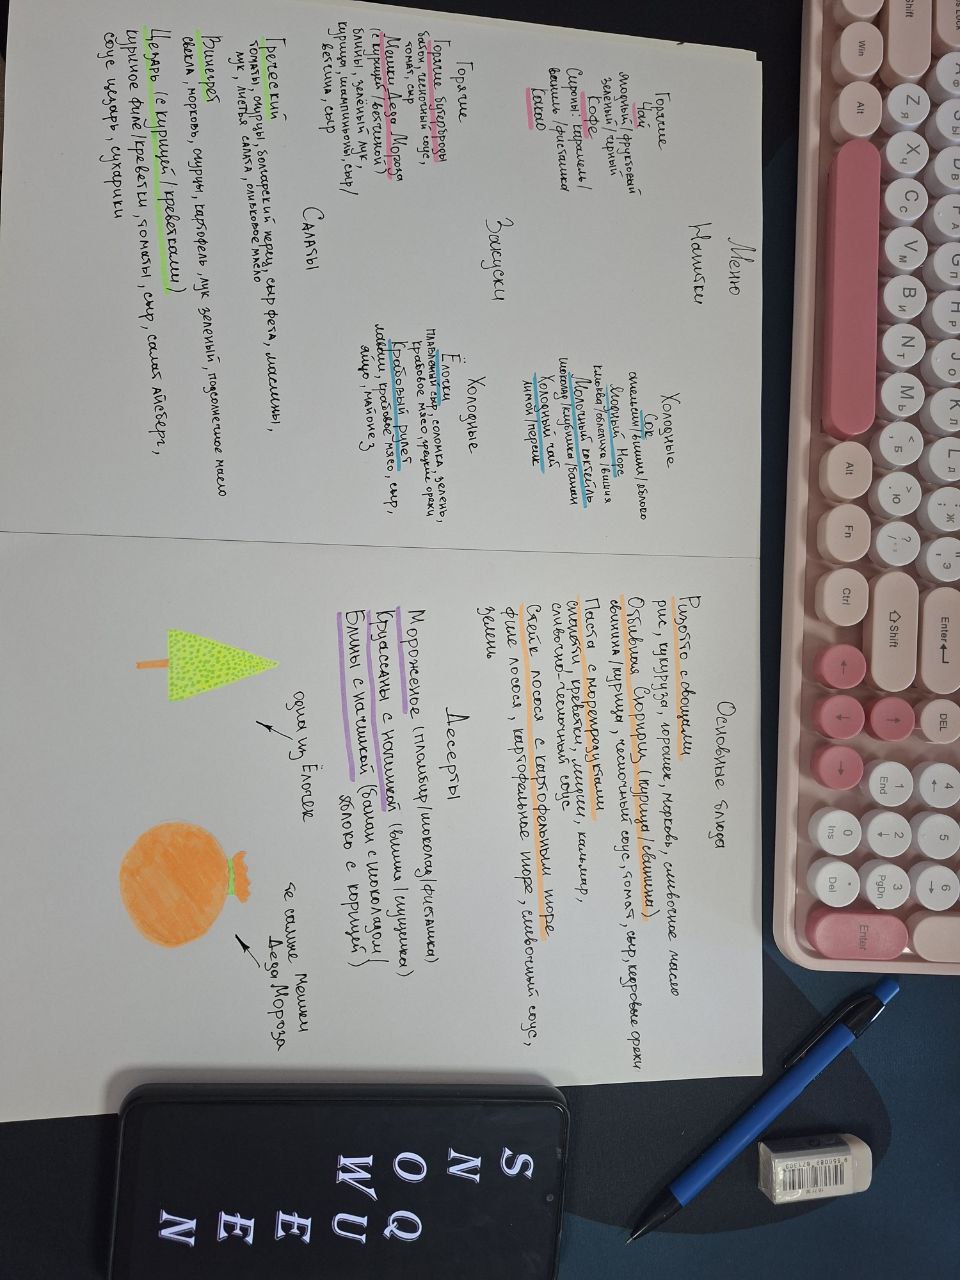 Меню
Напитки
Горячие
Чай
ягодный/фруктовый
зелёный/чёрный
Кофе
Сиропы: карамель/
ваниль/фисташка
Какао
Холодные
Сок
апельсин/вишня/яблоко
Ягодный морс
клюква/облепиха/вишня
Молочный коктейль
шоколад/клубника/банан
Холодный чай
лимон/персик
Закуски
Горячие
Горячие бутерброды
батон, чесночный соус,
томат, сыр
Мешки Деда Мороза
(с курицей/ветчиной)
блины, зелёный лук,
курица, шампиньоны, сыр/
ветчина, сыр
Холодные
Ёлочки
плавленый сыр, соломка, зелень,
крабовое мясо, грецкие орехи
Крабовый рулет
лаваш, крабовое мясо, сыр,
яйцо, майонез
Салаты
Греческий
томаты, огурцы, болгарский перец, сыр фета, маслины,
лук, листья салата, оливковое масло
Винегрет
свекла, морковь, огурцы, картофель, лук зеленый, подсолнечное масло
Цезарь (с курицей/креветками)
куриное филе/креветки, томаты, сыр, салат Айсберг,
соус цезарь, сухарики
Основные блюда
Ризотто с овощами
рис, кукуруза, горошек, морковь, сливочное масло
Отбивная Сюрприз (курица/свинина)
свинина/курица, чесночный соус, томат, сыр, кедровые орехи
Паста с морепродуктами
спагетти, креветки, мидии, кальмар,
сливочно-чесночный соус
Стейк лосося с картофельным пюре
филе лосося, картофельное пюре, сливочный соус,
зелень
Десерты
Мороженое (пломбир/шоколад/фисташка)
Круассаны с начинкой (вишня/сгущенка)
Блины с начинкой (банан с шоколадом/
яблоко с корицей)
одна из Ёлочек
те самые Мешки
Деда Мороза
SNOW
QUEEN
Shift
Win
Alt
Z Я
X Ч
C С
V М
B И
N Т
M Ь
< , Б
> . Ю
? /
Alt
Fn
Ctrl
Shift
Enter
DEL
1 End
2
3 PgDn
4
5
6
0 Ins
Del
Enter